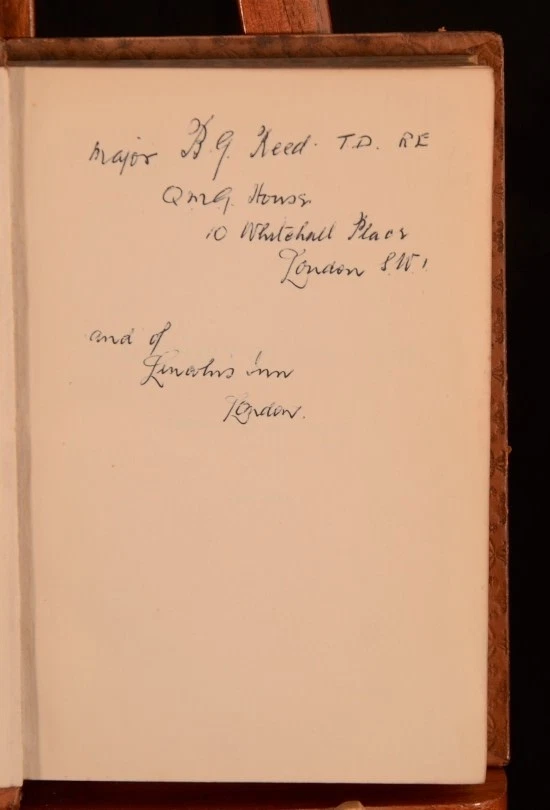 Major B.G. Reed. T.D. RE
QMG. House
10 Whitehall Place
London S.W.1
and of
Lincoln's Inn
London.